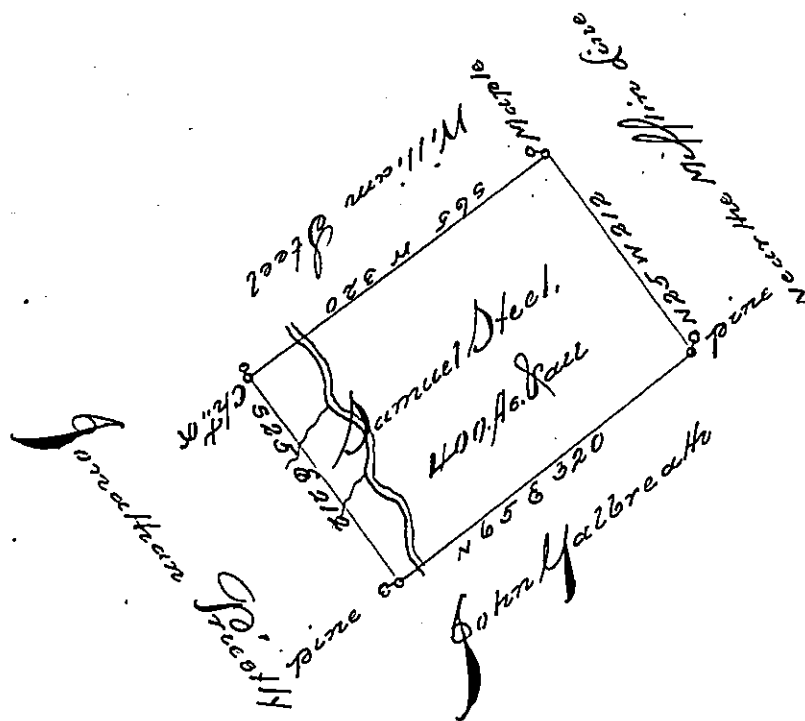 Near the Mifflin Line
Maple
William Steel
S 65 W 320
N 25 W 212
Pine
Samuel Steel.
400. Ac. &
Ch: ok
S 25 E 212
N 65 E 320
John Galbreath
Pine
Jonathan